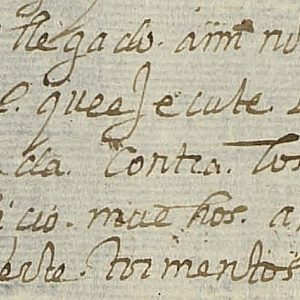 llegado. ami no
que eJecute.
da. Contra. los
icio. muchos. a
erte. tormentos